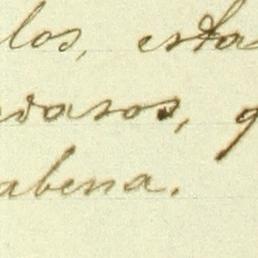 los, esta
vasos, q
abena.